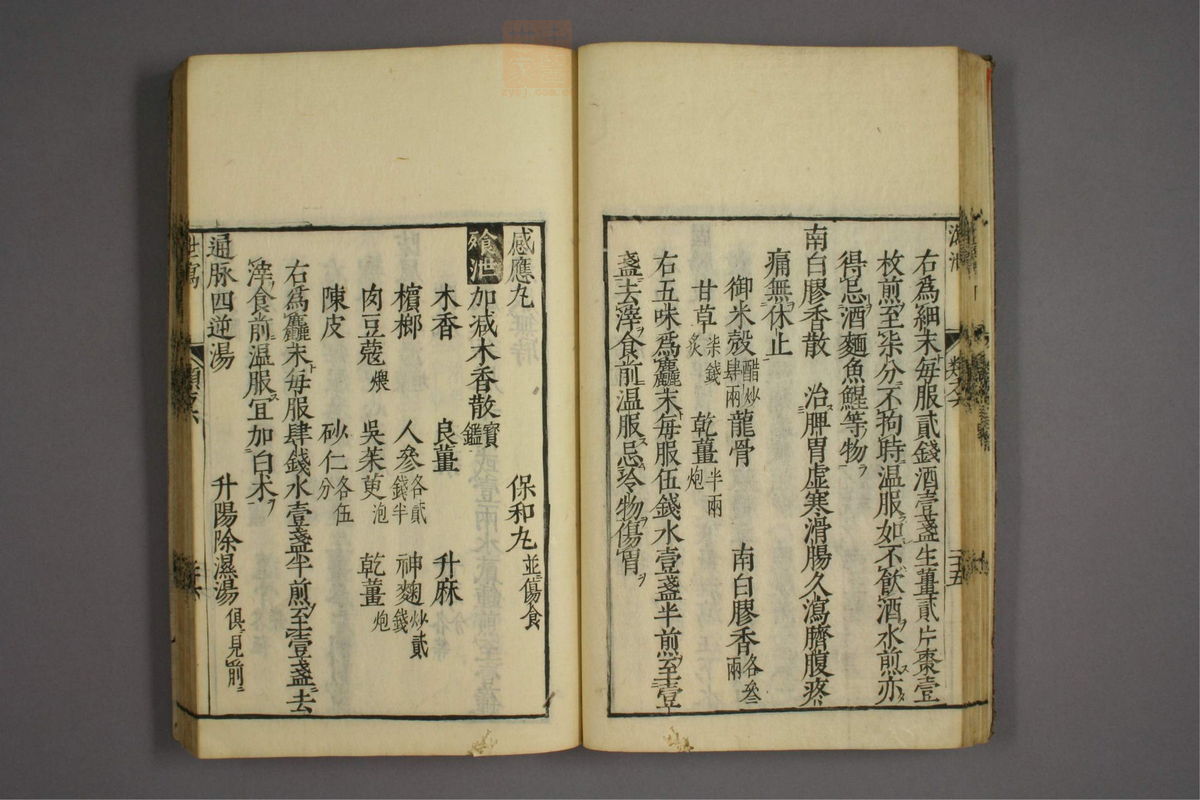 右為細末每服貳錢酒壹盞生薑貳片棗壹
枚煎至柒分不拘時溫服如不飲酒水煎亦
得忌酒麵魚鯹等物
南白膠香散 治脾胃虛寒滑腸久瀉臍腹疼
痛無休止
御米殼醋炒肆兩 龍骨 南白膠香各叁兩
甘草炙柒錢 乾薑炮半兩
右五味為麤末每服伍錢水壹盞半煎至壹
盞去滓食前溫服忌冷物傷胃
感應丸 保和丸並傷食
飱泄 加減木香散寶鑑
木香 良薑 升麻
檳榔 人參各貳錢半 神麴炒貳錢
肉豆蔻煨 吳茱萸泡 乾薑炮
陳皮 砂仁各伍分
右為麤末每服肆錢水壹盞半煎至壹盞去
滓食前溫服宜加白朮
通脉四逆湯 升陽除濕湯俱見前